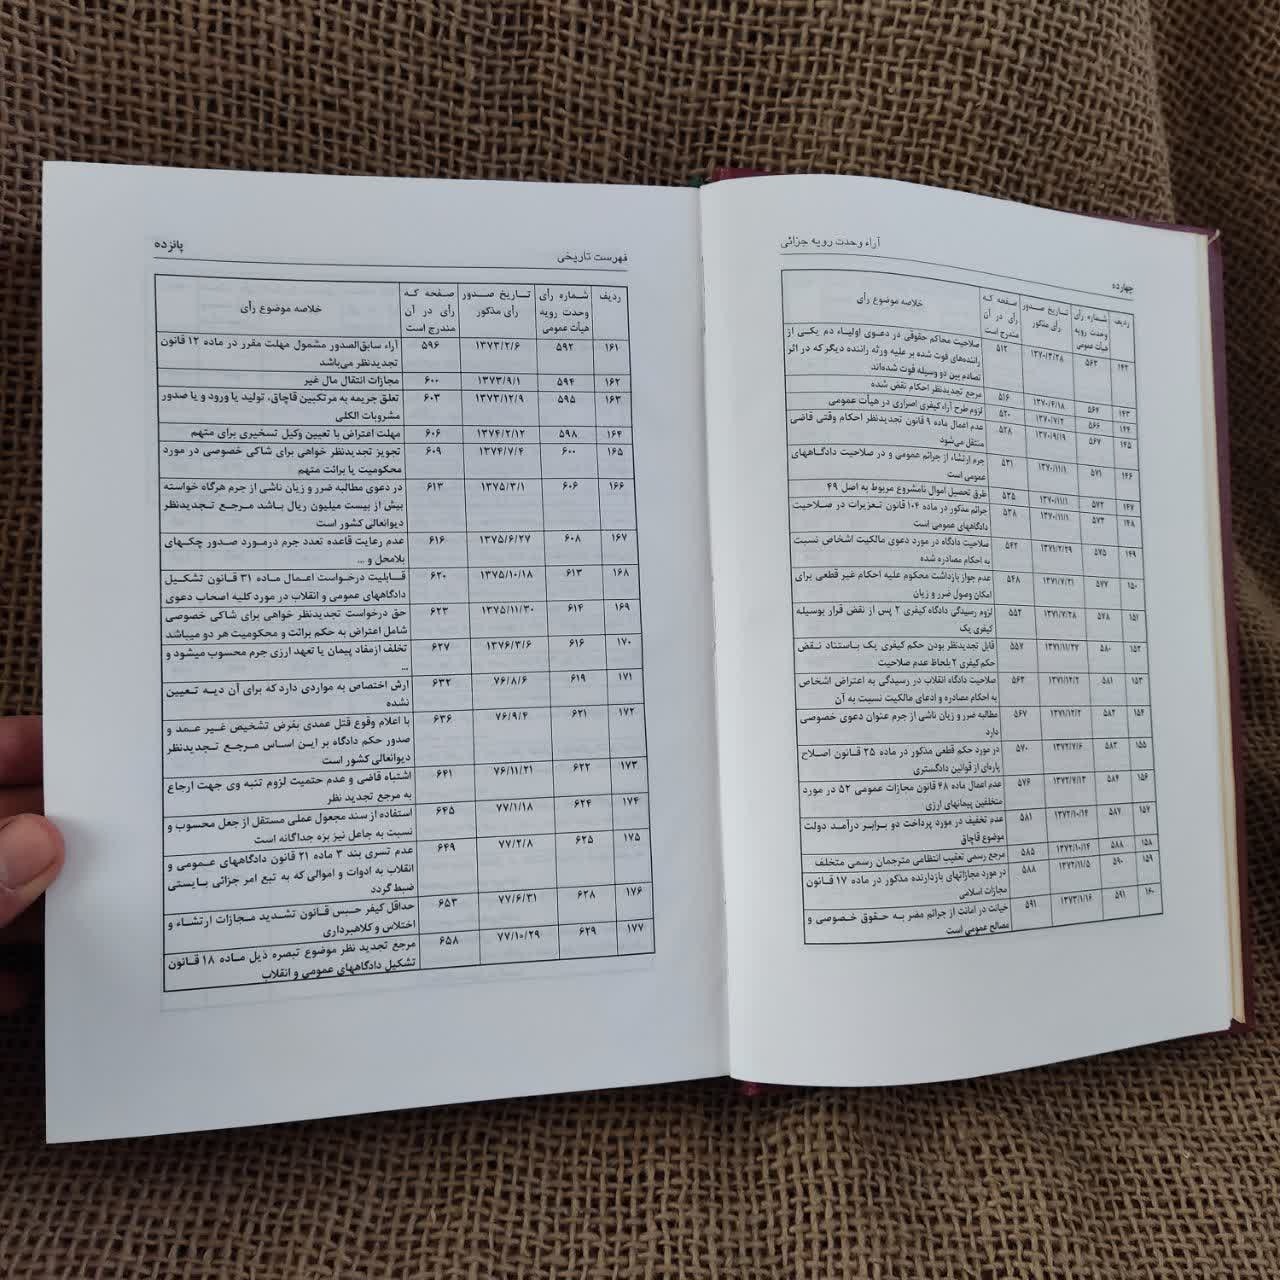 چهارده
آراء وحدت رویه جزائی
ردیف شماره رأی وحدت رویه هیأت عمومی تاریخ صدور رأی مذکور صفحه که رأی در آن مندرج است خلاصه موضوع رأی
۱۴۲ ۵۶۳ ۱۳۷۰/۳/۲۸ ۵۱۲ صلاحیت محاکم حقوقی در دعوی اولیاء دم یکی از
راننده‌های فوت شده بر علیه ورثه راننده دیگر که در اثر
تصادم بین دو وسیله فوت شده‌اند
۱۴۳ ۵۶۴ ۱۳۷۰/۴/۱۸ ۵۱۶ مرجع تجدیدنظر احکام نقض شده
۱۴۴ ۵۶۶ ۱۳۷۰/۷/۲ ۵۲۰ لزوم طرح آراء کیفری اصراری در هیأت عمومی
۱۴۵ ۵۶۷ ۱۳۷۰/۹/۱۹ ۵۲۸ عدم اعمال ماده ۹ قانون تجدیدنظر احکام وقتی قاضی
منتقل می‌شود
۱۴۶ ۵۷۱ ۱۳۷۰/۱۱/۱ ۵۳۱ جرم ارتشاء از جرائم عمومی و در صلاحیت دادگاههای
عمومی است
۱۴۷ ۵۷۲ ۱۳۷۰/۱۱/۱ ۵۳۵ طرق تحصیل اموال نامشروع مربوط به اصل ۴۹
۱۴۸ ۵۷۳ ۱۳۷۰/۱۱/۱ ۵۳۸ جرائم مذکور در ماده ۱۰۴ قانون تعزیرات در صلاحیت
دادگاههای عمومی است
۱۴۹ ۵۷۵ ۱۳۷۱/۲/۲۹ ۵۴۲ صلاحیت دادگاه در مورد دعوی مالکیت اشخاص نسبت
به احکام مصادره شده
۱۵۰ ۵۷۷ ۱۳۷۱/۷/۲۱ ۵۴۸ عدم جواز بازداشت محکوم علیه احکام غیر قطعی برای
امکان وصول ضرر و زیان
۱۵۱ ۵۷۸ ۱۳۷۱/۷/۲۸ ۵۵۲ لزوم رسیدگی دادگاه کیفری ۲ پس از نقض قرار بوسیله
کیفری یک
۱۵۲ ۵۸۰ ۱۳۷۱/۱۱/۲۷ ۵۵۷ قابل تجدیدنظر بودن حکم کیفری یک باستناد نقض
حکم کیفری ۲ بلحاظ عدم صلاحیت
۱۵۳ ۵۸۱ ۱۳۷۱/۱۲/۲ ۵۶۳ صلاحیت دادگاه انقلاب در رسیدگی به اعتراض اشخاص
به احکام مصادره و ادعای مالکیت نسبت به آن
۱۵۴ ۵۸۲ ۱۳۷۱/۱۲/۲ ۵۶۷ مطالبه ضرر و زیان ناشی از جرم عنوان دعوی خصوصی
دارد
۱۵۵ ۵۸۳ ۱۳۷۲/۷/۶ ۵۷۰ در مورد حکم قطعی مذکور در ماده ۲۵ قانون اصلاح
پاره‌ای از قوانین دادگستری
۱۵۶ ۵۸۴ ۱۳۷۲/۷/۱۳ ۵۷۶ عدم اعمال ماده ۴۸ قانون مجازات عمومی ۵۲ در مورد
متخلفین پیمانهای ارزی
۱۵۷ ۵۸۷ ۱۳۷۲/۱۰/۱۴ ۵۸۱ عدم تخفیف در مورد پرداخت دو برابر درآمد دولت
موضوع قاچاق
۱۵۸ ۵۸۸ ۱۳۷۲/۱۰/۱۴ ۵۸۵ مرجع رسمی تعقیب انتظامی مترجمان رسمی متخلف
۱۵۹ ۵۹۰ ۱۳۷۲/۱۱/۵ ۵۸۸ در مورد مجازاتهای بازدارنده مذکور در ماده ۱۷ قانون
مجازات اسلامی
۱۶۰ ۵۹۱ ۱۳۷۳/۱/۱۶ ۵۹۱ خیانت در امانت از جرائم مضر به حقوق خصوصی و
مصالح عمومی است
فهرست تاریخی
پانزده
ردیف شماره رأی وحدت رویه هیأت عمومی تاریخ صدور رأی مذکور صفحه که رأی در آن مندرج است خلاصه موضوع رأی
۱۶۱ ۵۹۲ ۱۳۷۳/۲/۶ ۵۹۶ آراء سابق‌الصدور مشمول مهلت مقرر در ماده ۱۲ قانون
تجدیدنظر می‌باشد
۱۶۲ ۵۹۴ ۱۳۷۳/۹/۱ ۶۰۰ مجازات انتقال مال غیر
۱۶۳ ۵۹۵ ۱۳۷۳/۱۲/۹ ۶۰۳ تعلق جریمه به مرتکبین قاچاق، تولید یا ورود و یا صدور
مشروبات الکلی
۱۶۴ ۵۹۸ ۱۳۷۴/۲/۱۲ ۶۰۶ مهلت اعتراض با تعیین وکیل تسخیری برای متهم
۱۶۵ ۶۰۰ ۱۳۷۴/۷/۴ ۶۰۹ تجویز تجدیدنظر خواهی برای شاکی خصوصی در مورد
محکومیت یا برائت متهم
۱۶۶ ۶۰۶ ۱۳۷۵/۳/۱ ۶۱۳ در دعوی مطالبه ضرر و زیان ناشی از جرم هرگاه خواسته
بیش از بیست میلیون ریال باشد مرجع تجدیدنظر
دیوانعالی کشور است
۱۶۷ ۶۰۸ ۱۳۷۵/۶/۲۷ ۶۱۶ عدم رعایت قاعده تعدد جرم درمورد صدور چکهای
بلامحل و ...
۱۶۸ ۶۱۳ ۱۳۷۵/۱۰/۱۸ ۶۲۰ قابلیت درخواست اعمال ماده ۳۱ قانون تشکیل
دادگاههای عمومی و انقلاب در مورد کلیه اصحاب دعوی
۱۶۹ ۶۱۴ ۱۳۷۵/۱۱/۳۰ ۶۲۳ حق درخواست تجدیدنظر خواهی برای شاکی خصوصی
شامل اعتراض به حکم برائت و محکومیت هر دو میباشد
۱۷۰ ۶۱۶ ۱۳۷۶/۳/۶ ۶۲۷ تخلف ازمفاد پیمان یا تعهد ارزی جرم محسوب میشود و
...
۱۷۱ ۶۱۹ ۷۶/۸/۶ ۶۳۲ ارش اختصاص به مواردی دارد که برای آن دیه تعیین
نشده
۱۷۲ ۶۲۱ ۷۶/۹/۴ ۶۳۶ با اعلام وقوع قتل عمدی بفرض تشخیص غیر عمد و
صدور حکم دادگاه بر این اساس مرجع تجدیدنظر
دیوانعالی کشور است
۱۷۳ ۶۲۲ ۷۶/۱۱/۲۱ ۶۴۱ اشتباه قاضی و عدم حتمیت لزوم تنبه وی جهت ارجاع
به مرجع تجدید نظر
۱۷۴ ۶۲۴ ۷۷/۱/۱۸ ۶۴۵ استفاده از سند مجعول عملی مستقل از جعل محسوب و
نسبت به جاعل نیز بزه جداگانه است
۱۷۵ ۶۲۵ ۷۷/۲/۸ ۶۴۹ عدم تسری بند ۳ ماده ۲۱ قانون دادگاههای عمومی و
انقلاب به ادوات و اموالی که به تبع امر جزائی بایستی
ضبط گردد
۱۷۶ ۶۲۸ ۷۷/۶/۳۱ ۶۵۳ حداقل کیفر حبس قانون تشدید مجازات ارتشاء و
اختلاس و کلاهبرداری
۱۷۷ ۶۲۹ ۷۷/۱۰/۲۹ ۶۵۸ مرجع تجدید نظر موضوع تبصره ذیل ماده ۱۸ قانون
تشکیل دادگاههای عمومی و انقلاب